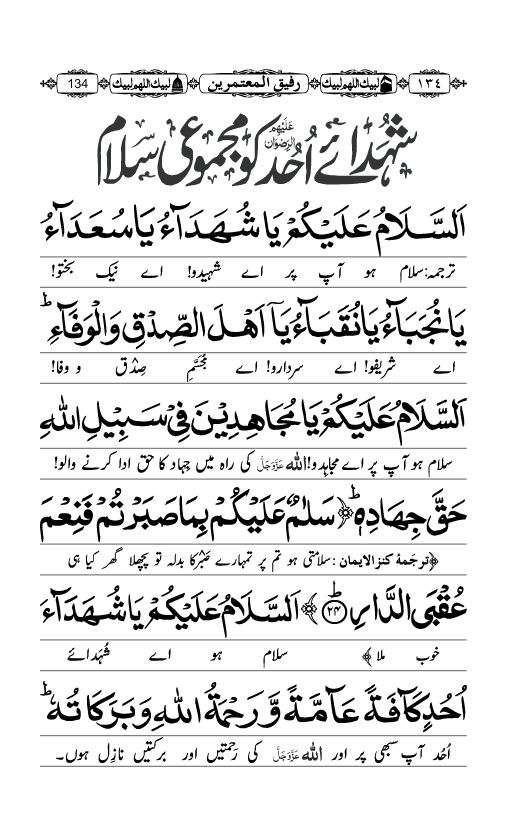 ١٣٤ لبیك اللهم لبیك رفیق المعتمرین لبیك اللهم لبیك 134
شہدائے اُحُد عَلَیْہِمُ الرِّضْوَان کو مجموعی سلام
اَلسَّلَامُ عَلَیْکُمْ یَا شُهَدَآءُ یَا سُعَدَآءُ
ترجمہ: سلام ہو آپ پر اے شہیدو! اے نیک بختو!
یَا نُجَبَآءُ یَا نُقَبَآءُ یَآ اَهْلَ الصِّدْقِ وَالْوَفَآءِ ؕ
اے شریفو! اے سردارو! اے مُجَسَّمِ صِدْق و وفا!
اَلسَّلَامُ عَلَیْکُمْ یَا مُجَاهِدِیْنَ فِیْ سَبِیْلِ اللهِ
سلام ہو آپ پر اے مجاہِدو! اللہ عَزَّوَجَلَّ کی راہ میں جہاد کا حق ادا کرنے والو!
حَقَّ جِهَادِهٖ ؕ ﴿سَلٰمٌ عَلَیْکُمْ بِمَا صَبَرْتُمْ فَنِعْمَ
﴿ترجَمۂ کنزالایمان: سلامتی ہو تم پر تمہارے صَبْر کا بدلہ تو پچھلا گھر کیا ہی
عُقْبَی الدَّارِ ؕ ۲۴﴾ اَلسَّلَامُ عَلَیْکُمْ یَا شُهَدَآءَ
خوب ملا﴾ سلام ہو اے شُہَدائے
اُحُدٍ کَآفَّةً عَآمَّةً وَّ رَحْمَةُ اللهِ وَ بَرَکَاتُهٗ ؕ
اُحُد آپ سبھی پر اور اللہ عَزَّوَجَلَّ کی رَحمتیں اور برکتیں نازِل ہوں۔